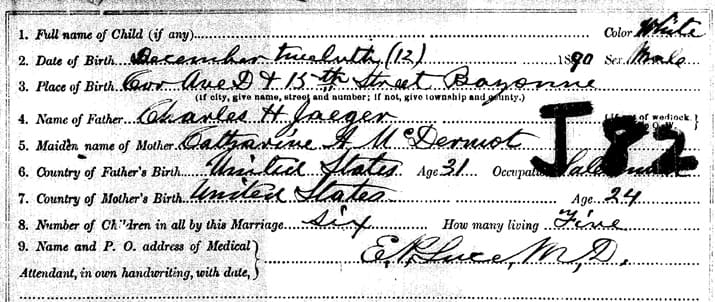 1. Full name of Child (if any) Color White
2. Date of Birth December twelvth (12) 1890 Sex Male
3. Place of Birth Cor Ave D & 15th Street Bayonne
(If city, give name, street and number; if not, give township and county.)
4. Name of Father Charles H Jaeger of wedlock
5. Maiden name of Mother Catharine A McDermot J82
6. Country of Father's Birth United States Age 31 Occupation Salesman
7. Country of Mother's Birth United States Age 24
8. Number of Children in all by this Marriage six How many living Five
9. Name and P. O. address of Medical
Attendant, in own handwriting, with date, E. P. Luce, M. D.